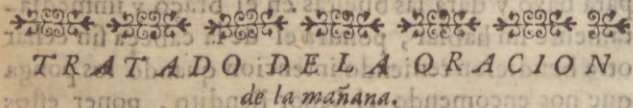 TRATADO DE LA ORACION
de la mañana.